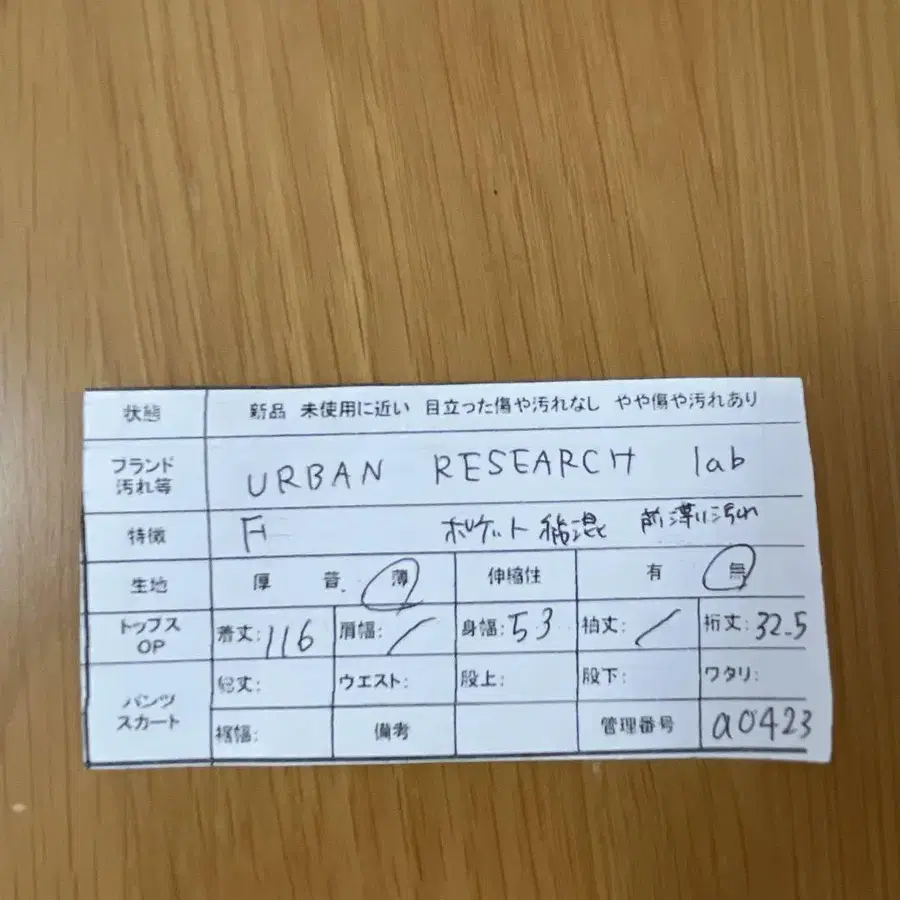 状態 新品 未使用に近い 目立った傷や汚れなし やや傷や汚れあり
ブランド 汚れ等 URBAN RESEARCH lab
特徴 F ポケット 綿混 前薄い汚れ
生地 厚 普 薄 伸縮性 有 無
トップス OP 着丈: 116 肩幅: / 身幅: 53 袖丈: / 裄丈: 32.5
パンツ スカート 総丈: ウエスト: 股上: 股下: ワタリ:
裾幅: 備考 管理番号 a0423